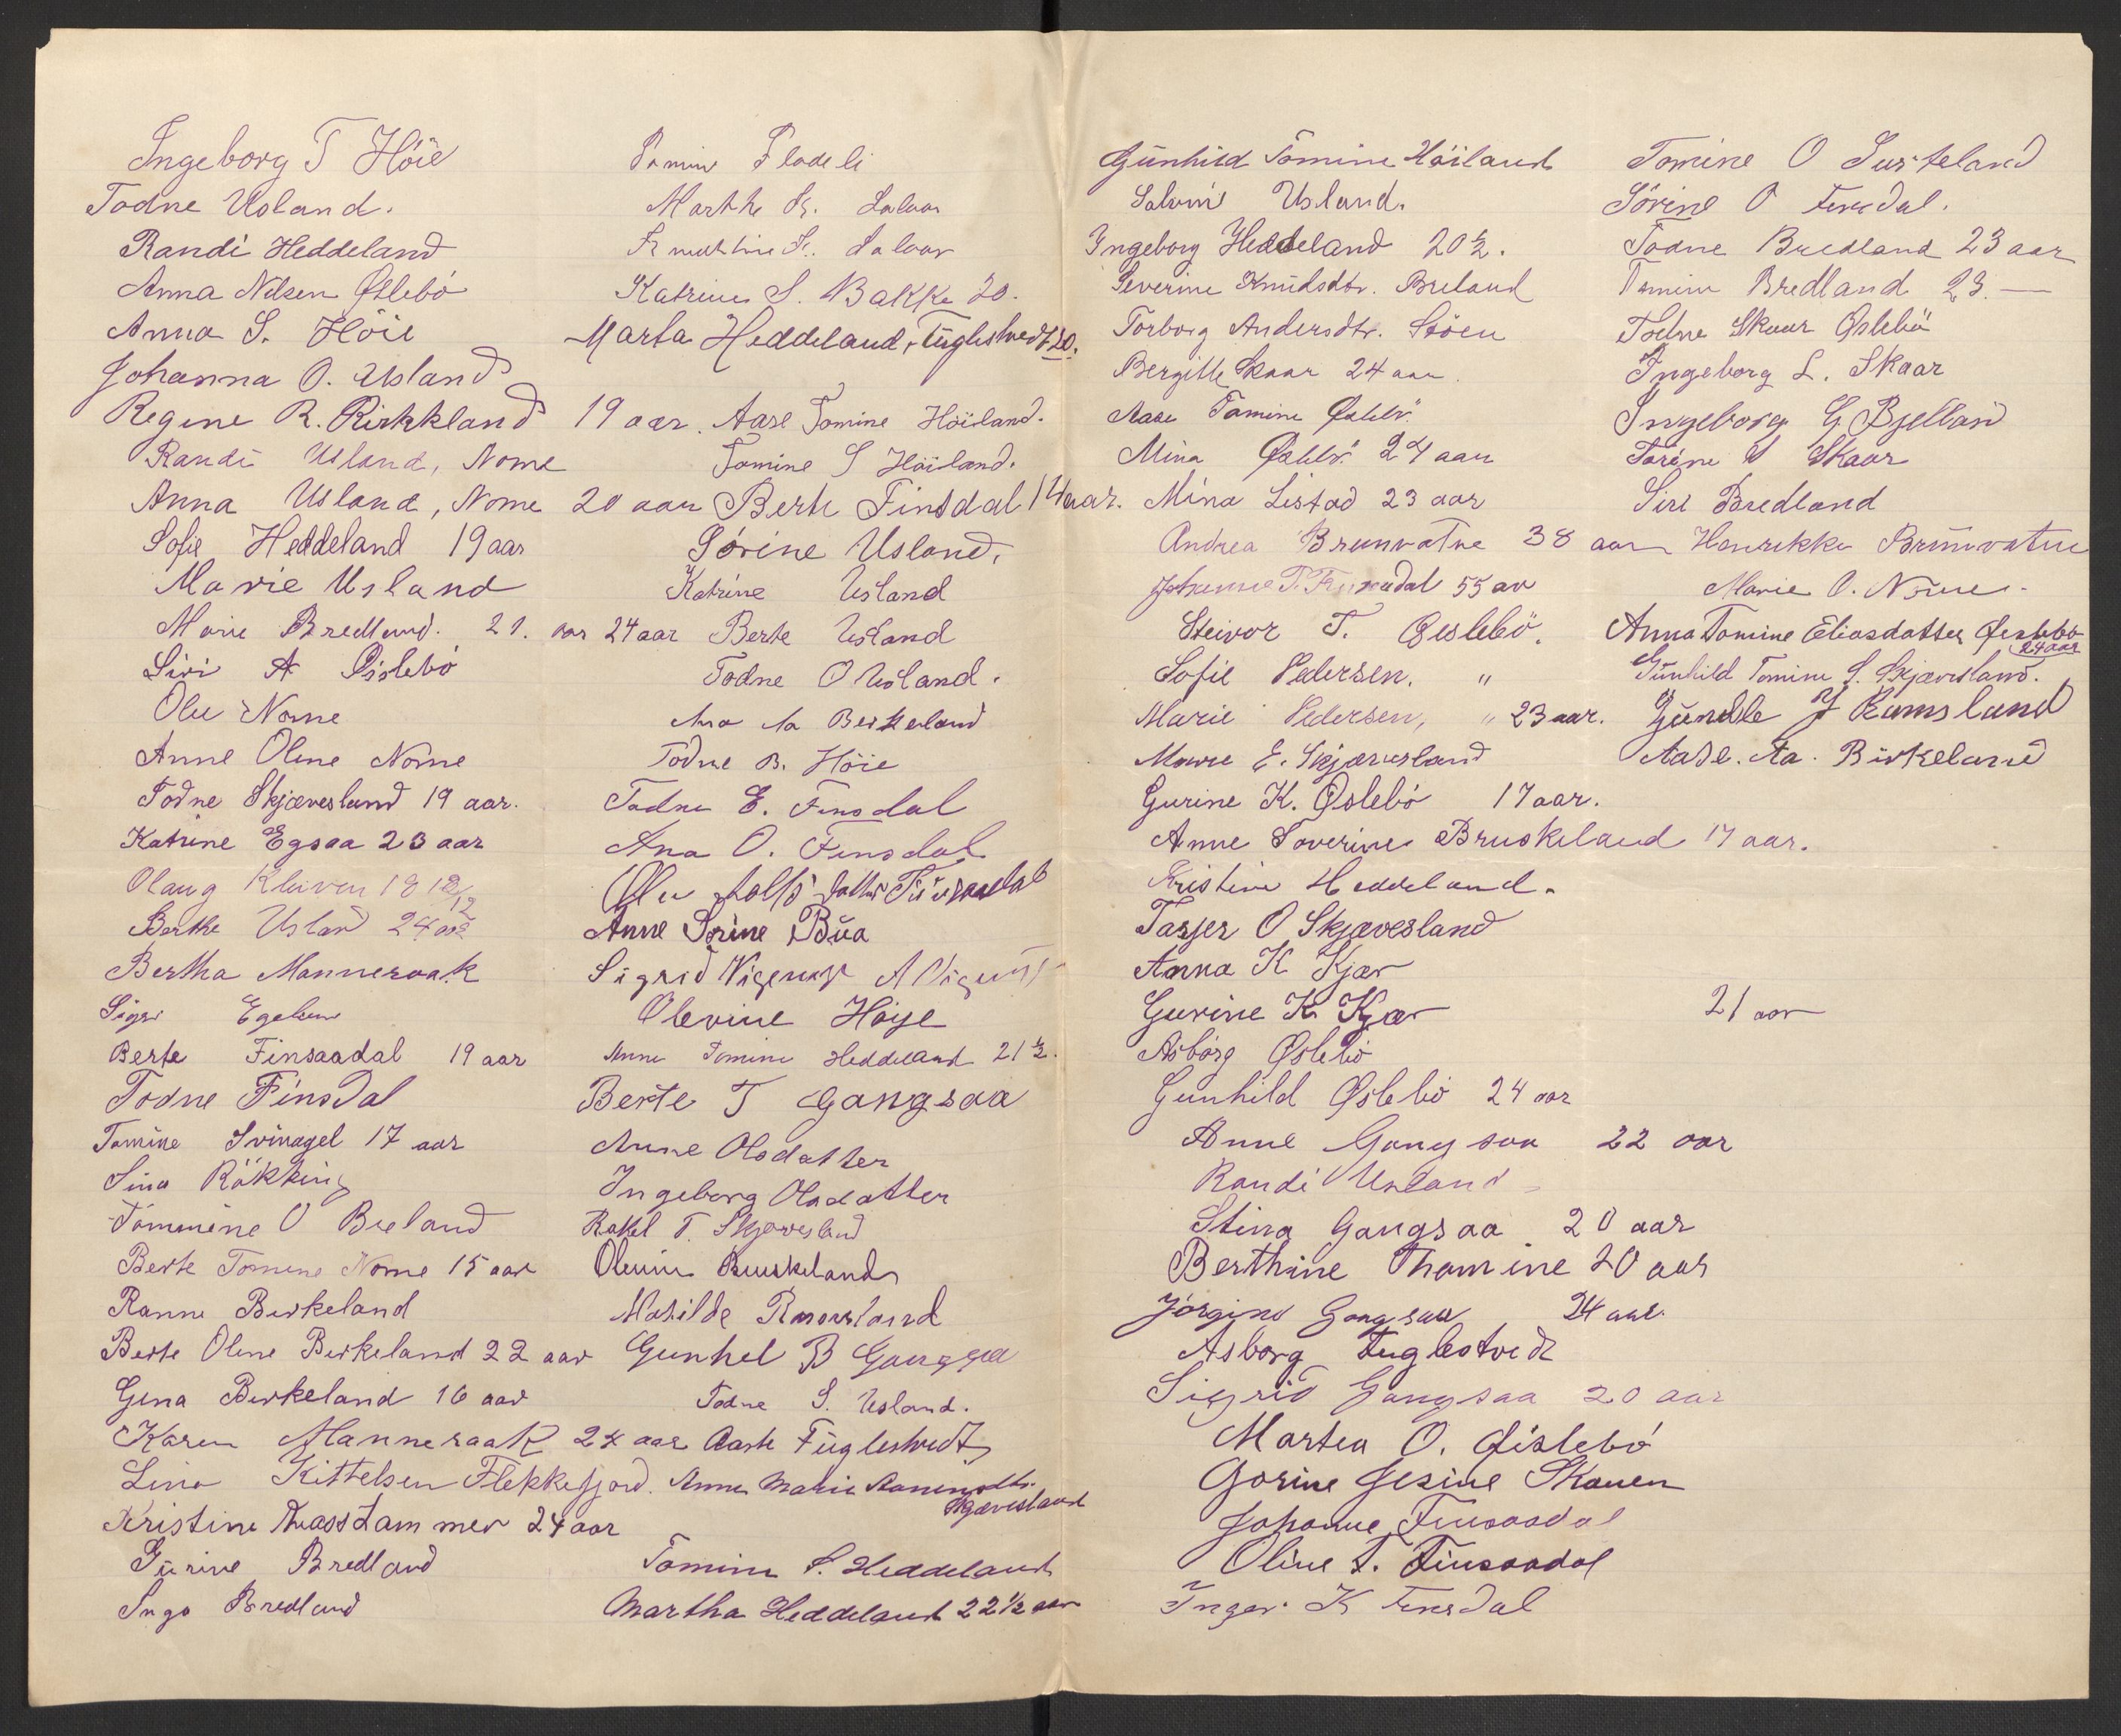 Ingeborg T Höie
Todne Usland.
Randi Heddeland
Anna Nilsen Øslebö
Anna S. Höie
Johanna O. Usland
Regine R. Birkkland 19 aar.
Randi Usland, Nome
Anna Usland, Nome 20 aar
Sofie Heddeland 19 aar
Marie Usland
Marie Bredland. 21. aar
Siri A Øislebö
Olu Nome
Anne Oline Nome
Todne Skjævesland 19 aar.
Katrine Egsaa 23 aar
Olaug Kleiven 18
Berthe Usland 24 aar
Bertha Manneraak
Berte Finsaadal 19 aar
Todne FinsDal
Tomine Svinagel 17 aar
Sina Rökking
Tommine O Breland
Berte Tomine Nome 15 aar
Ranne Birkeland
Berte Oline Birkeland 22 aar
Gina Birkeland 16 aar
Karen Manneraak 24 aar
Lina Kittelsen Flekkefjord.
Kristine 24 aar
Gurine Bredland
Inga Bredland
Tomine Fladeli
Marthe K. Lalaar
Lalaar
Katrine S. Bakke 20.
Marta Heddeland, Fuglestvedt 20.
Aase Tomine Höiland.
Tomine S Höiland.
Berte Finsdal 14 aar.
Sörine Usland.
Katrine Usland
24 aar Berte Usland
Todne O Usland.
Ana Aa Berkeland
Todne B. Höie
Todne E. Finsdal
Ana O. Finsdal
Anne Sorine Bua
Sigrid
Olevine Höye
Anne Tomine Heddeland 21 ½.
Berte T Gangsaa
Anne Olsdatter
Ingeborg Olsdatter
Rakel T. Skjævesland
Olevine Bruskeland
Matilde Ramsland
Gunhel B Gangsaa
Todne S. Usland.
Aaste Fuglestvedt
Anne Marie Aanensdtr. Skjævesland
Tomine S. Heddeland
Martha Heddeland 22 ½ aar
Gunhild Tomine Höiland
Salvine Usland.
Ingeborg Heddeland 20 ½.
Severine Knudsdtr. Breland
Torborg Andersdtr. Stöen
Bergitte Skaar 24 aar.
Aase Tomine Øslebö
Mina Øslebö 24 aar
Mina Listad 23 aar
Andrea Brunvatne 38 aar
Johanne T. Finsadal 55 ar
Steivor T. Øeslebö.
Sofie Pedersen. "
Marie Pedersen, " 23 aar.
Marie E. Skjævesland
Gurine K. Øslebö 17 aar.
Anne Soverine Bruskeland 17 aar.
Kristine Heddeland.
Tarjer O Skjævesland
Anna K Kjær
Gurine K Kjær 21 aar
Asbörg Øslebö
Gunhild Øslebö 24 aar
Anne Gangsaa 22 aar
Randi Usland
Stina Gangsaa 20 aar
Berthine Thomine 20 aar
Jörgine Gangsaa 24 aar.
Asborg Fuglestvedt
Sigrid Gangsaa 20 aar
Martea O. Øislebö
Gorine Jesine Skauen
Johanne Finsaadal
Oline T. Finsaadal
Inger K Finsdal
Tomine O Susteland
Sörine O Finsdal.
Todne Bredland 23 aar
Tomine Bredland 23. —
Todne Skaar Øslebö
Ingeborg L. Skaar
Ingeborg G. Bjelland
Torine S Skaar
Siri Bredland
Henrikke Brunvatne
Marie O. Nome.
Anna Tomine Eliasdatter Øeslebö 24 aar
Gunhild Tomine S. Skjævesland.
Gunelle J Ramsland
Aase. Aa. Birkeland